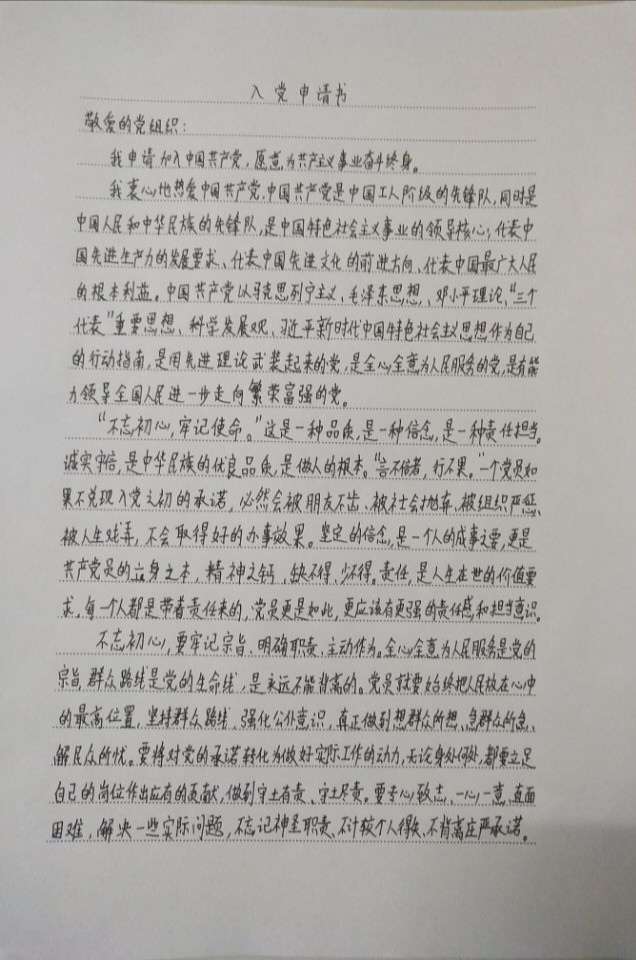 入党申请书
敬爱的党组织:
我申请加入中国共产党,愿意为共产主义事业奋斗终身。
我衷心地热爱中国共产党,中国共产党是中国工人阶级的先锋队,同时是
中国人民和中华民族的先锋队,是中国特色社会主义事业的领导核心,代表中
国先进生产力的发展要求、代表中国先进文化的前进方向、代表中国最广大人民
的根本利益。中国共产党以马克思列宁主义、毛泽东思想、邓小平理论、“三个
代表”重要思想、科学发展观、习近平新时代中国特色社会主义思想作为自己
的行动指南,是用先进理论武装起来的党,是全心全意为人民服务的党,是有能
力领导全国人民进一步走向繁荣富强的党。
“不忘初心,牢记使命。”这是一种品质,是一种信念,是一种责任担当。
诚实守信,是中华民族的优良品质,是做人的根本。“言不信者,行不果。”一个党员如
果不兑现入党之初的承诺,必然会被朋友不齿、被社会抛弃、被组织严惩、
被人生戏弄,不会取得好的办事效果。坚定的信念,是一个人的成事之要,更是
共产党员的立身之本,精神之钙,缺不得、少不得。责任,是人生在世的价值要
求。每一个人都是带着责任来的,党员更是如此,更应该有更强的责任感和担当意识。
不忘初心,要牢记宗旨、明确职责、主动作为。全心全意为人民服务是党的
宗旨,群众路线是党的生命线,是永远不能背离的。党员就要始终把人民放在心中
的最高位置,坚持群众路线、强化公仆意识,真正做到想群众所想、急群众所急、
解民众所忧。要将对党的承诺转化为做好实际工作的动力,无论身处何处,都要立足
自己的岗位作出应有的贡献,做到守土有责、守土尽责。要专心致志、一心一意、直面
困难,解决一些实际问题,不忘记神圣职责、不计较个人得失、不背离庄严承诺。